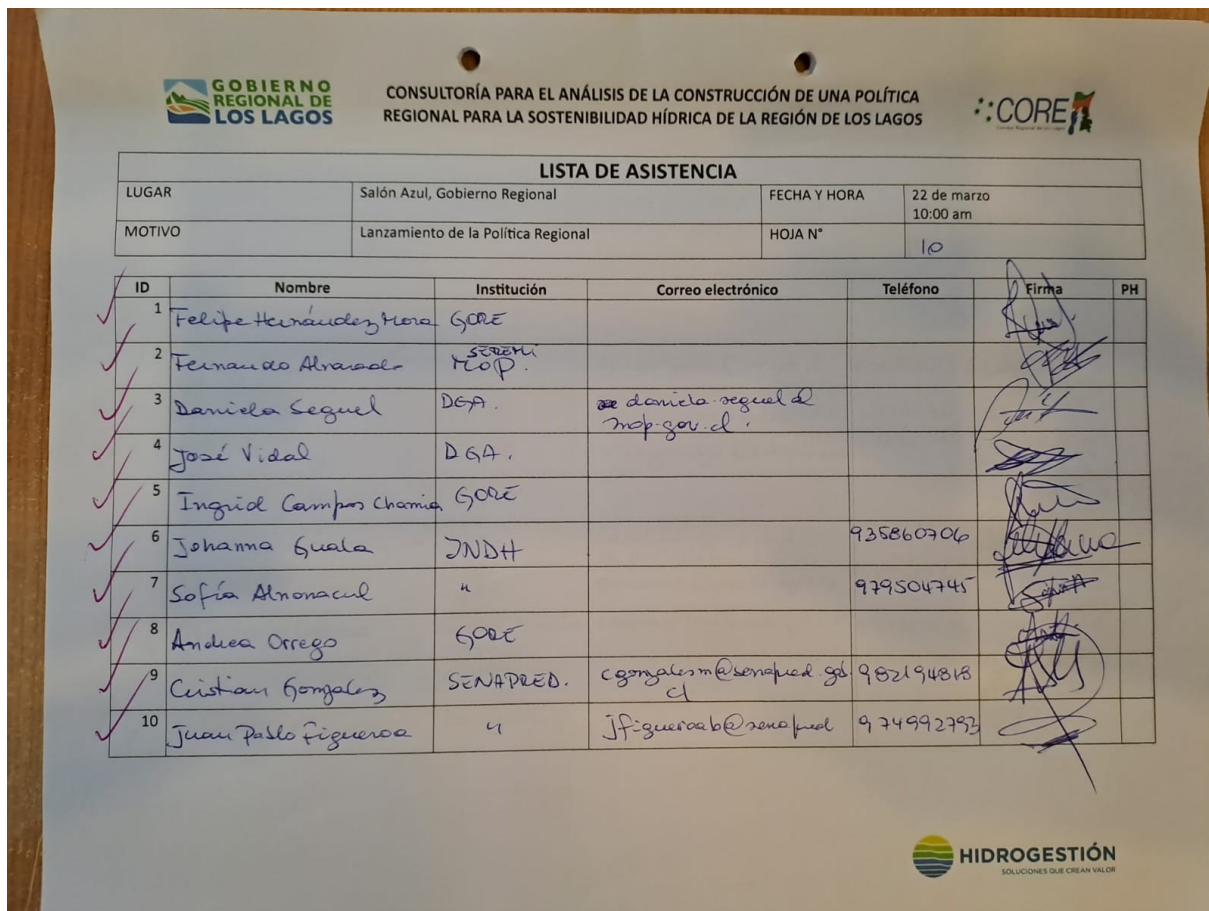 GOBIERNO
REGIONAL DE
LOS LAGOS
CONSULTORÍA PARA EL ANÁLISIS DE LA CONSTRUCCIÓN DE UNA POLÍTICA
REGIONAL PARA LA SOSTENIBILIDAD HÍDRICA DE LA REGIÓN DE LOS LAGOS
CORE
LISTA DE ASISTENCIA
LUGAR Salón Azul, Gobierno Regional FECHA Y HORA 22 de marzo
10:00 am
MOTIVO Lanzamiento de la Política Regional HOJA N° 10
ID Nombre Institución Correo electrónico Teléfono Firma PH
1 Felipe Hernández Mora GORE
2 Fernando Alvarado SEREMI
MOP.
3 Daniela Seguel DGA. daniela.seguel@
mop.gov.cl.
4 José Vidal DGA.
5 Ingrid Campos GORE
6 Johanna Guala INDH 935860706
7 Sofía Almonacid " 979504745
8 Andrea Orrego GORE
9 Cristian Gonzalez SENAPRED. cgonzalesm@senapred.gob 982194818
cl
10 Juan Pablo Figueroa " jfigueroab@senapred 974992793
HIDROGESTIÓN
SOLUCIONES QUE CREAN VALOR